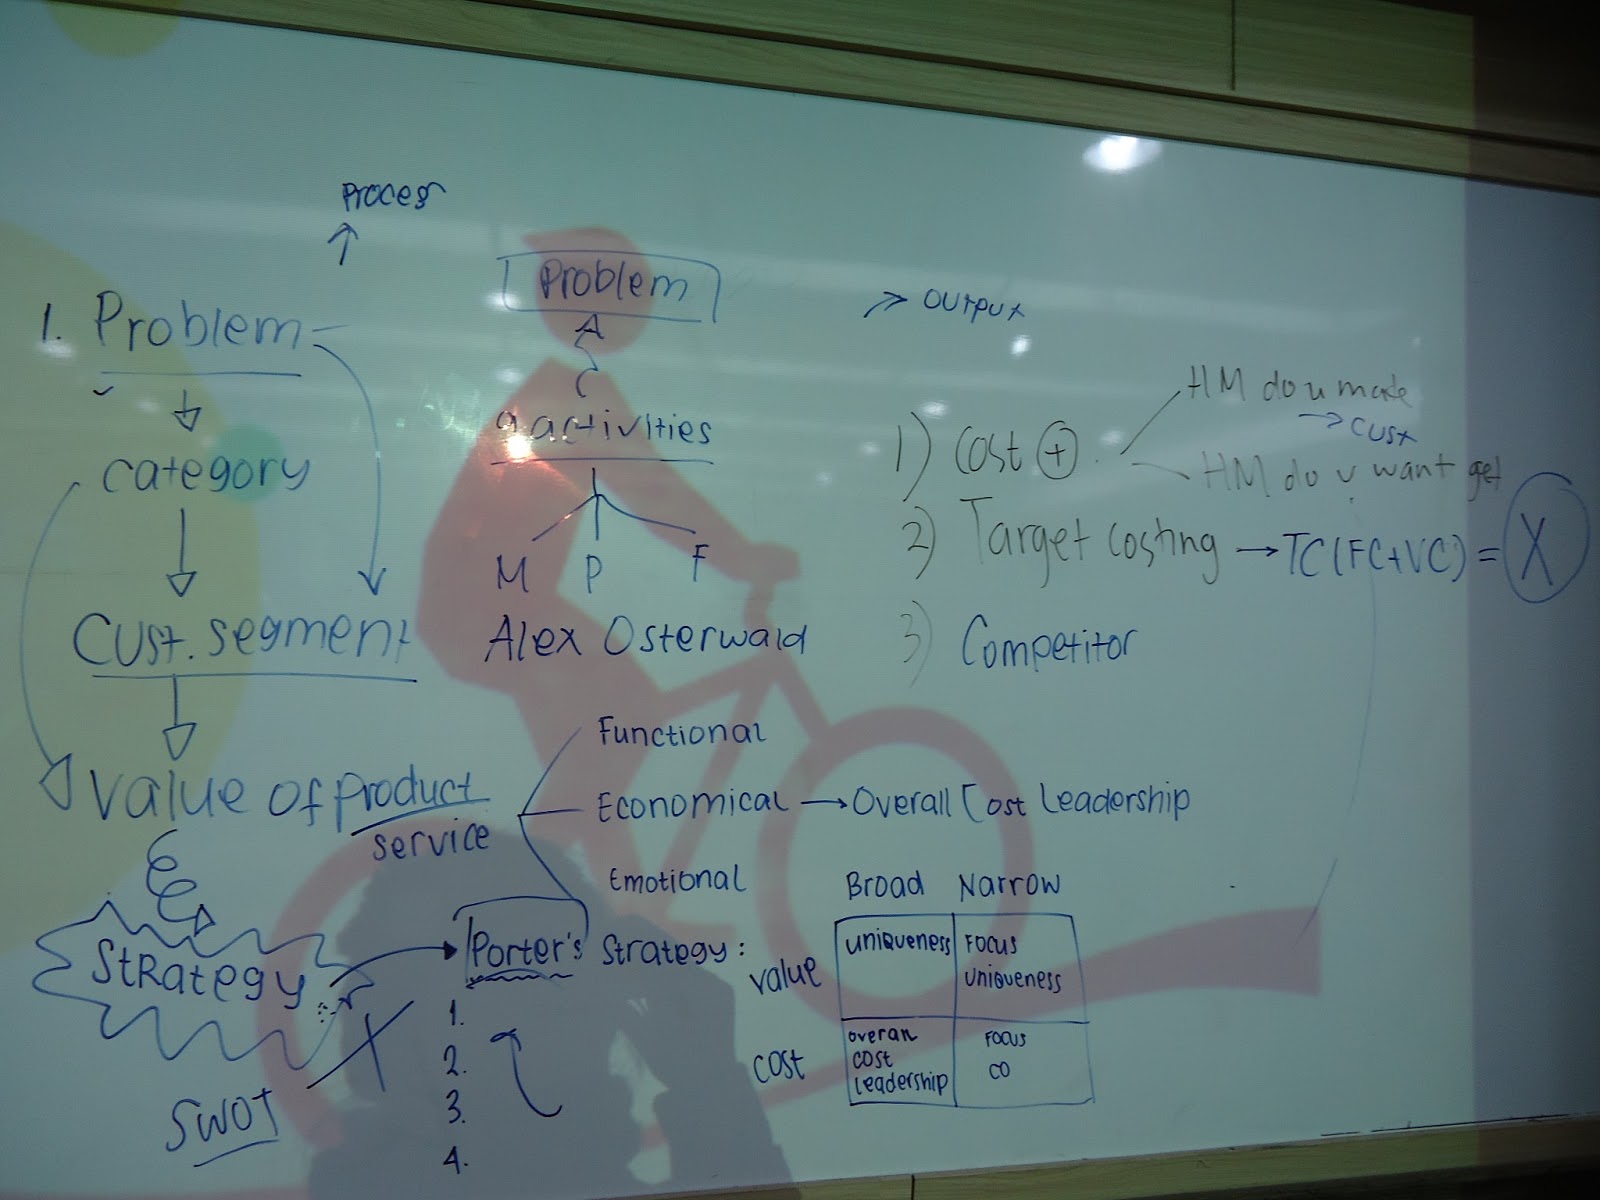 Process
Problem
OUTPUT
1. Problem
9 activities
category
M P F
Cust. segment
Alex Osterwald
1) Cost +
HM do u make
→ CUST
HM do u want get
2) Target costing → TC (FC+VC) = X
3) Competitor
Value of product
service
Functional
Economical → Overall Cost Leadership
Emotional
Strategy
Porter's Strategy:
1.
2.
3.
4.
SWOT
Broad Narrow
value
uniqueness
Focus
uniqueness
cost
overall
cost
leadership
Focus
CO